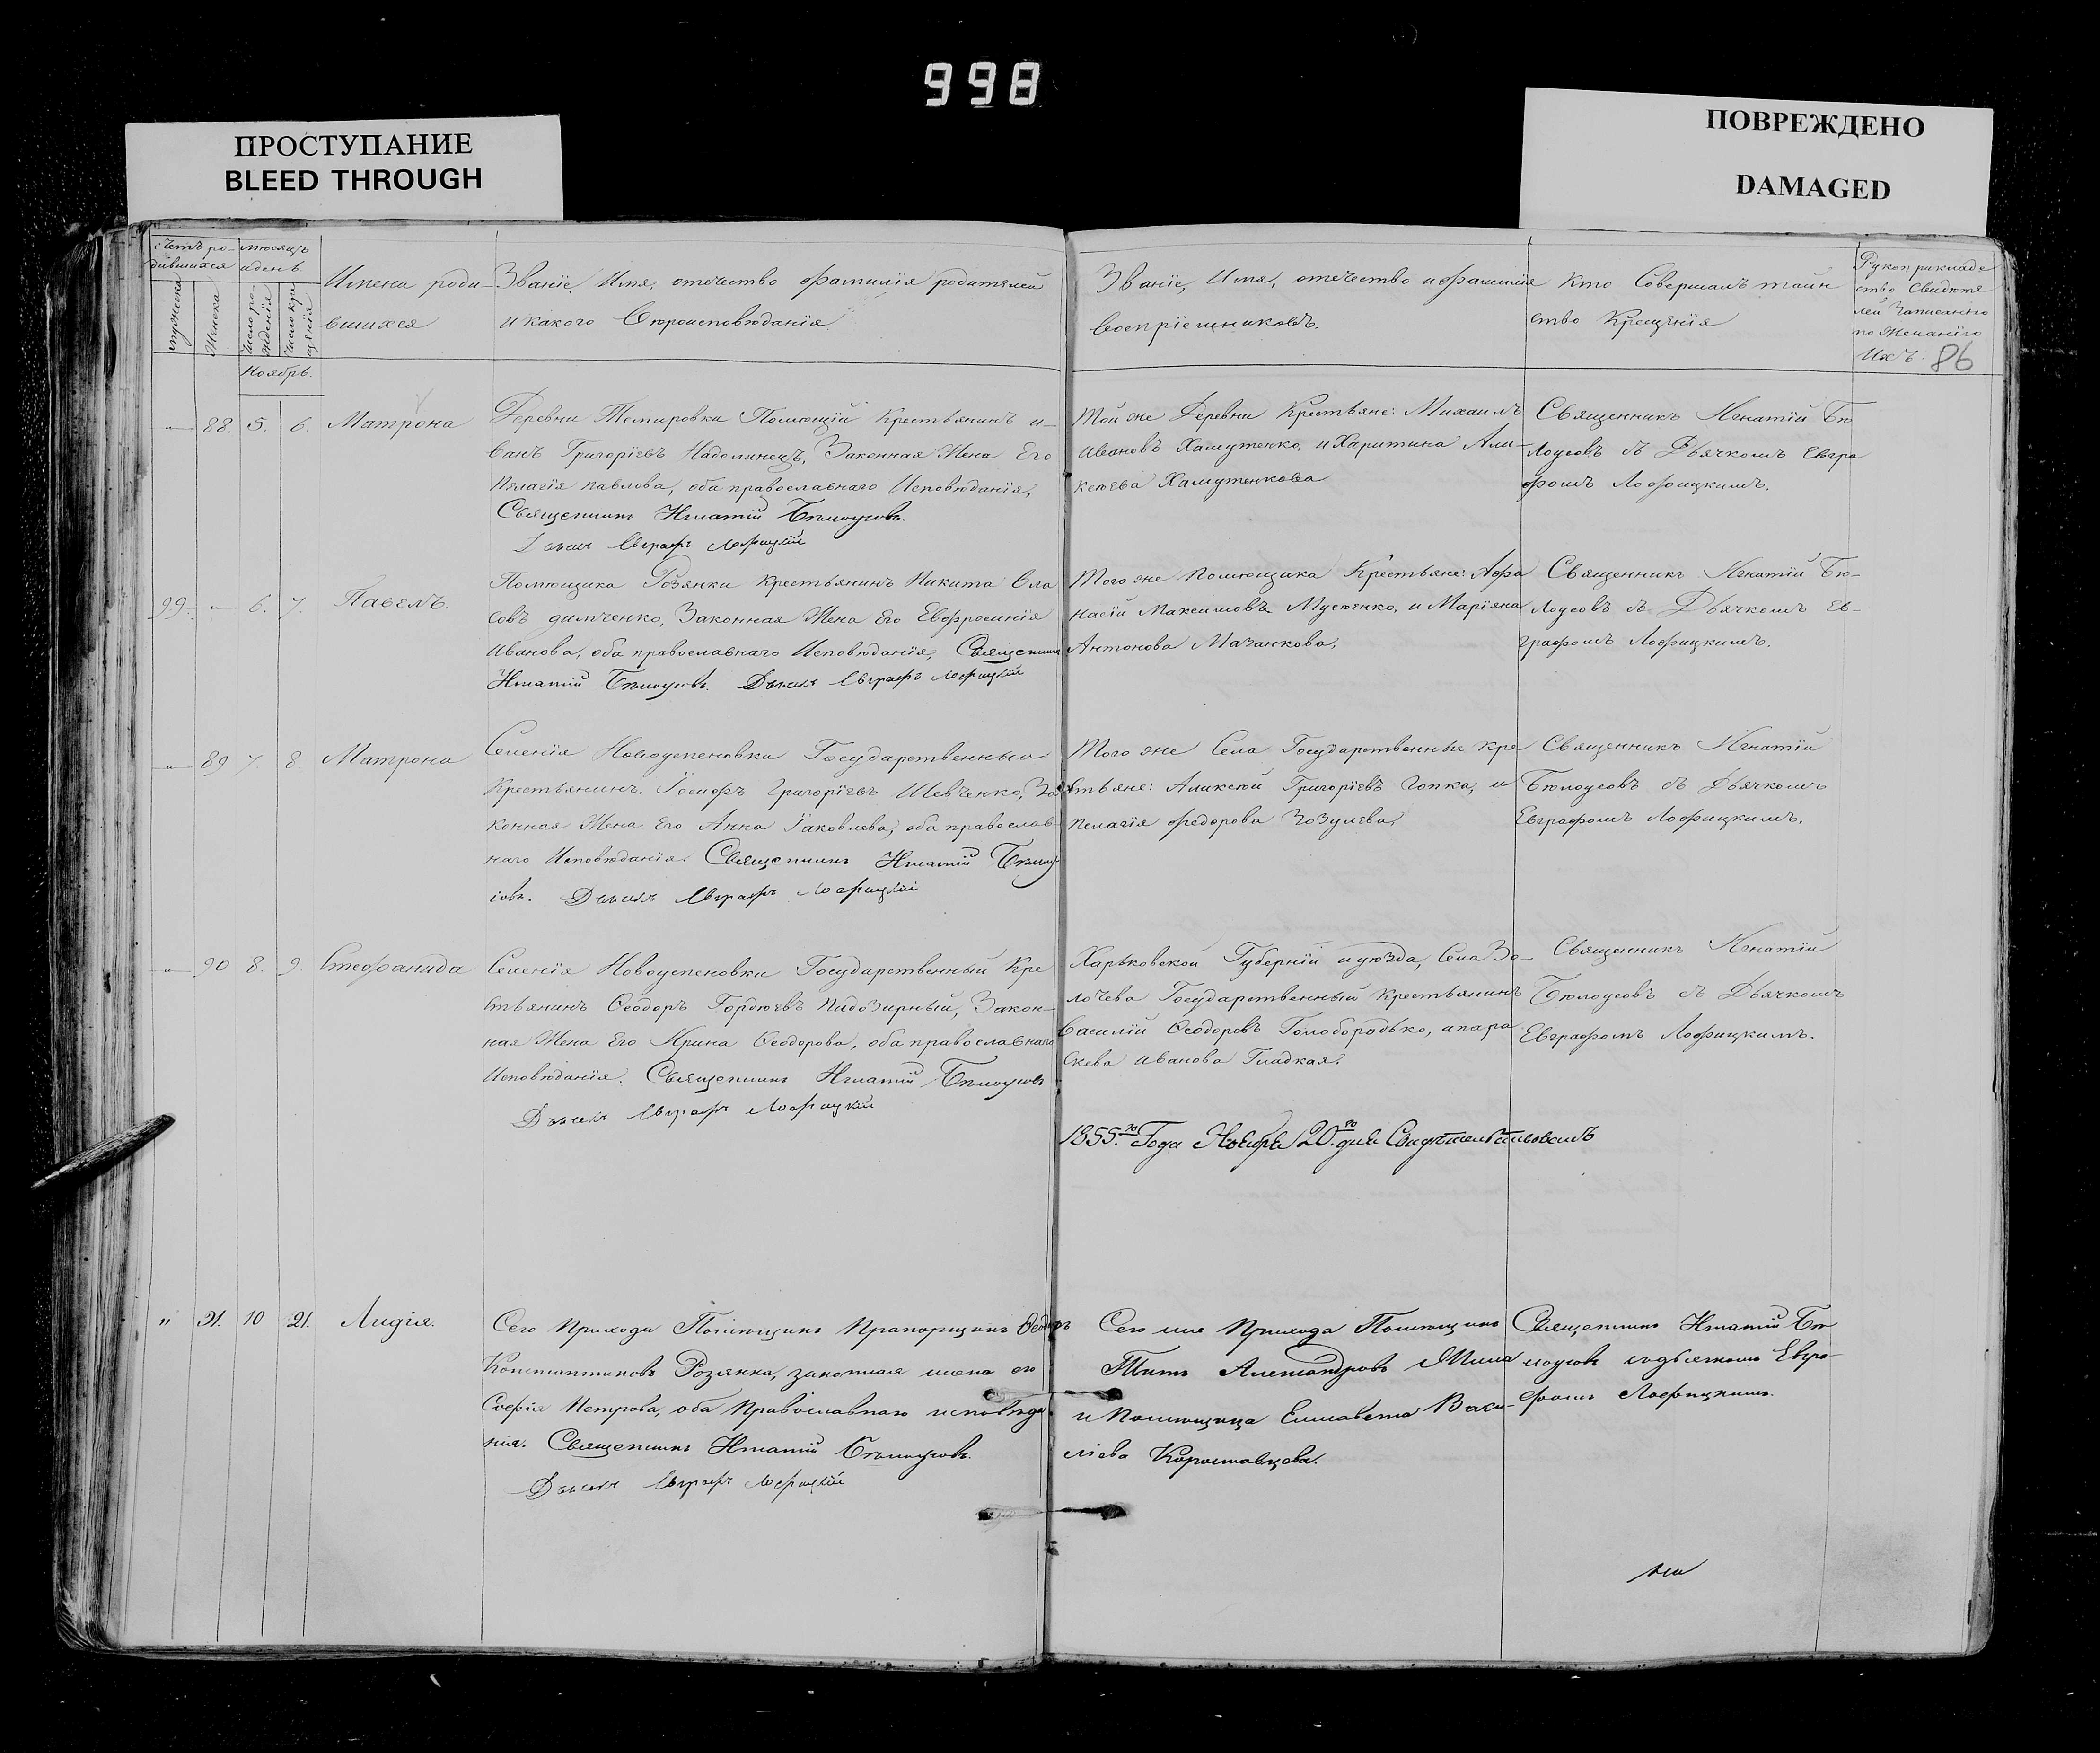 998
ПРОСТУПАНИЕ
BLEED THROUGH
ПОВРЕЖДЕНО
DAMAGED
Счетъ ро-
дившихся
мужеска
Женска
мѣсяцъ
и день
Число ро-
жденія
Число кре
щенія
Ноябрь.
Имена роди-
вшихся
Званіе, Имя, отечество фамилія родителей
и какого Вѣроисповѣданія.
Званіе, Имя, отечество и фамилия
Воспріемниковъ.
Кто Совершалъ таин
ство Крещенія
Рукоприкладс
ство Свидѣте
лей Записанно
по Желанію
Ихъ. 86
88. 5. 6. Матрона
Деревни Темировки Помѣщій Крестьянинъ и-
ванъ Григоріевъ Надолинецъ, Законная Жена Его
Пелагія павлова, оба православнаго Исповѣданія,
Священникъ Игнатій Бѣлоусовъ.
Дьячекъ Евграфъ Лофицкій
Той же Деревни Крестьяне: Михаилъ
Ивановъ Хамутенко, и Харитина Али-
ксѣева Хамутенкова
Священникъ Игнатій Бѣ
лоусовъ съ Дьячкомъ Евгра
фомъ Лофицкимъ.
99. 6. 7. Павелъ.
Помѣщика Розянки Крестьянинъ Никита Вла
совъ димченко, Законная Жена Его Евфросинія
Иванова, оба православнаго Исповѣданія, Священникъ
Игнатій Бѣлоусовъ. Дьячекъ Евграфъ Лофицкій
Того же Помѣщика Крестьяне: Афа
насій Максимовъ Мусѣенко, и Маріяна
Антонова Мазанкова,
Священникъ Игнатій Бѣ-
лоусовъ съ Дьячкомъ Ев-
графомъ Лофицкимъ.
89 7. 8. Матрона
Селенія Новоуспеновки Государственный
Крестьянинъ. Іосифъ Григоріевъ Шевченко, За
конная Жена Его Анна Іаковлева, оба православ-
наго Исповѣданія. Священникъ Игнатій Бѣлоу
совъ. Дьячекъ Евграфъ Лофицкій
Того же Села Государственные Кре
стьяне: Аликсѣй Григоріевъ Гопка, и
Пелагія Федорова Зозулева,
Священникъ Игнатій
Бѣлоусовъ съ Дьячкомъ
Евграфомъ Лофицкимъ.
90 8. 9. Стефанида
Селенія Новоуспеновки Государственный Кре
стьянинъ Ѳеодоръ Гордѣевъ Пидозирный, Закон-
ная Жена Его Ирина Ѳеодорова, оба православнаго
Исповѣданія. Священникъ Игнатій Бѣлоусовъ
Дьячекъ Евграфъ Лофицкій
Харьковской Губерніи и уѣзда, Села Зо-
лочева Государственный Крестьянинъ
Василій Ѳеодоровъ Голобородько, и пара
скева Иванова Гладкая.
Священникъ Игнатій
Бѣлоусовъ съ Дьячкомъ
Евграфомъ Лофицкимъ.
1855.го Года Ноября 20.го дня Свидѣтельствовалъ
" 91. 10 21. Лидія.
Сего Прихода Помѣщикъ Прапорщикъ Ѳедоръ
Константиновъ Розянка, законная жена его
Софія Петрова, оба Православнаго исповѣда
нія. Священникъ Игнатій Бѣлоусовъ.
Дьячекъ Евграфъ Лофицкій
Сего же Прихода Помѣщикъ
Титъ Александровъ
и Помѣщица Елисавета Васи-
ліева Коростовцева.
Священникъ Игнатій Бѣ
лоусовъ съ дьячкомъ Евгра-
фомъ Лофицкимъ.